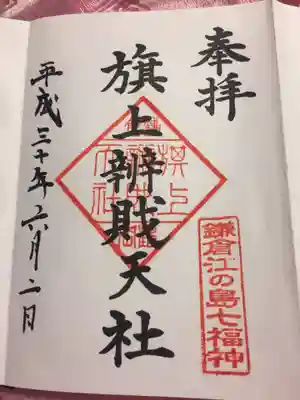 奉拝
旗上辨財天社
平成三十年六月二日
鎌倉江の島七福神